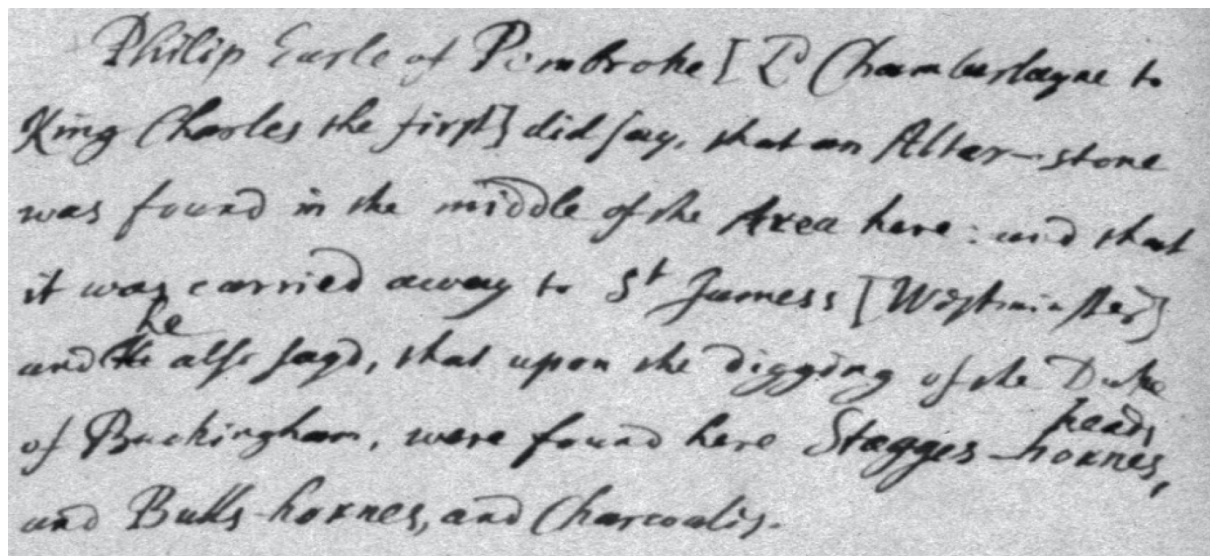 Philip Earle of Pembroke [Ld Chamberlayne to
King Charles the first] did say, that an Altar-stone
was found in the middle of the Area here: and that
it was carried away to St Jamess [Westminster]
he
and also sayd, that upon the digging of the Duke
heads
of Buckingham, were found here Stagges-hornes,
and Bulls-hornes, and Charcoales.